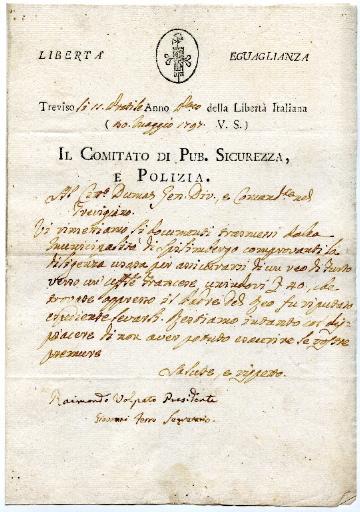 LIBERTÀ EGUAGLIANZA
Treviso li 11. Pratile Anno Pmo della Libertà Italiana
(30. Maggio 1797. V. S.)
IL COMITATO DI PUB. SICUREZZA,
E POLIZIA.
Al Citt.o Dumas Gen. Div., e Comand.te nel
Trevigiano.
Vi rimettiamo li documenti trasmessi dalla
Municipalità di Spilimbergo comprovanti la
diligenza usata per assicurarsi di un reo di furto
verso un' Uff.le francese, unindovi £ 40, che
trovate appresso il del Reo fu riputato
espediente levarli. Restiamo intanto con dis
piacere di non aver potuto eseguire le vostre
premure
Salute, e rispetto.
Raimondo Volpato Presidente
Giovanni Ferro Segretario.